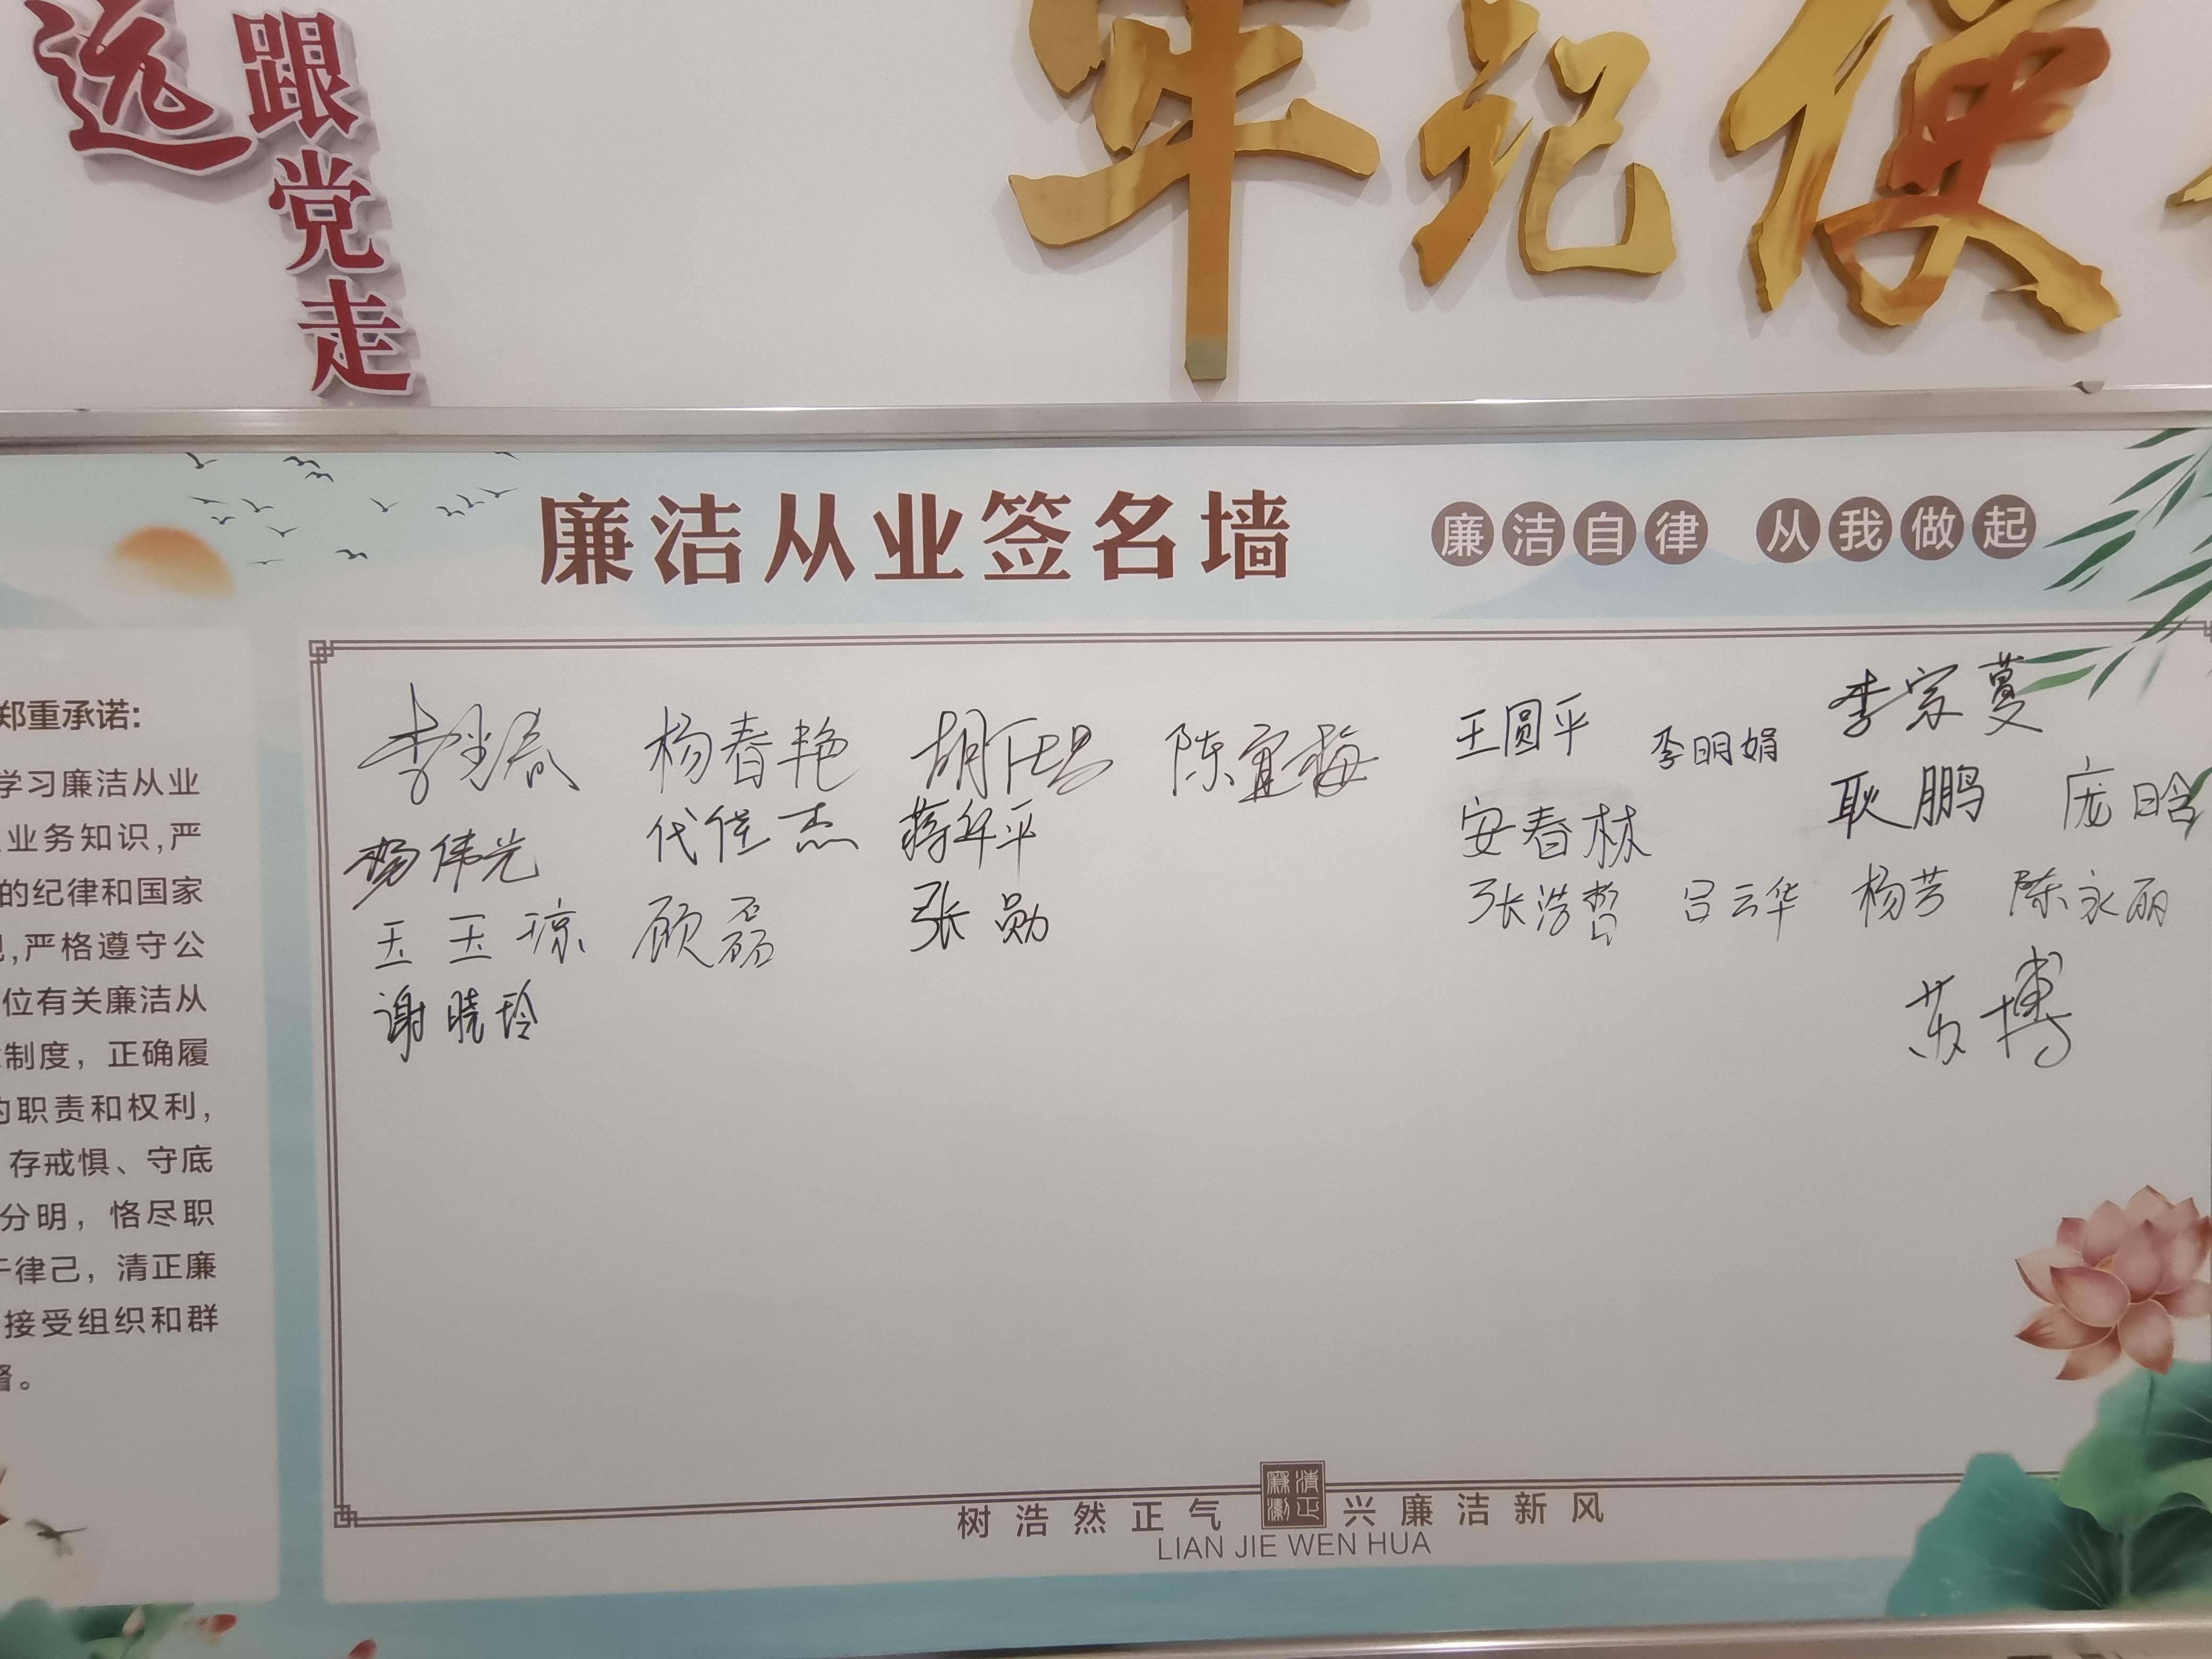 远跟党走
牢记使
廉洁从业签名墙
廉洁自律 从我做起
郑重承诺:
学习廉洁从业
业业务知识,严
的纪律和国家
严格遵守公
位有关廉洁从
制度，正确履
的职责和权利,
存戒惧、守底
分明，恪尽职
于律己，清正廉
接受组织和群
督。
杨春艳 陈宜梅 王圆平 李明娟 李宗蔓
杨伟光 代佳杰 蒋年平 安春林 耿鹏 庞晗
王玉琼 顾磊 张勋 张浩哲 吕云华 杨芳 陈永丽
谢晓玲 苏博
树浩然正气 清正廉洁 兴廉洁新风
LIAN JIE WEN HUA